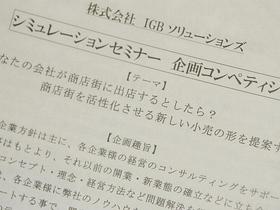 株式会社 IGB ソリューションズ
シミュレーションセミナー 企画コンペティシ
【テーマ】
なたの会社が商店街に出店するとしたら?
商店街を活性化させる新しい小売の形を提案す
【企画趣旨】
企業方針は主に、各企業様の経営のコンサルティングをサポー
事はもとより、それ以前の開業・新業態の確立などに立ち
コンセプト・理念・経営方法など問題解決を
、各企業様に弊社のノウハウ
ートする事で、